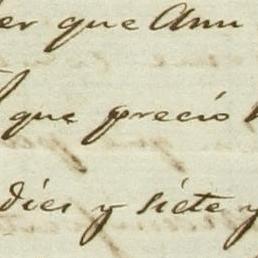 er que Ann
que precio
dies y siete y